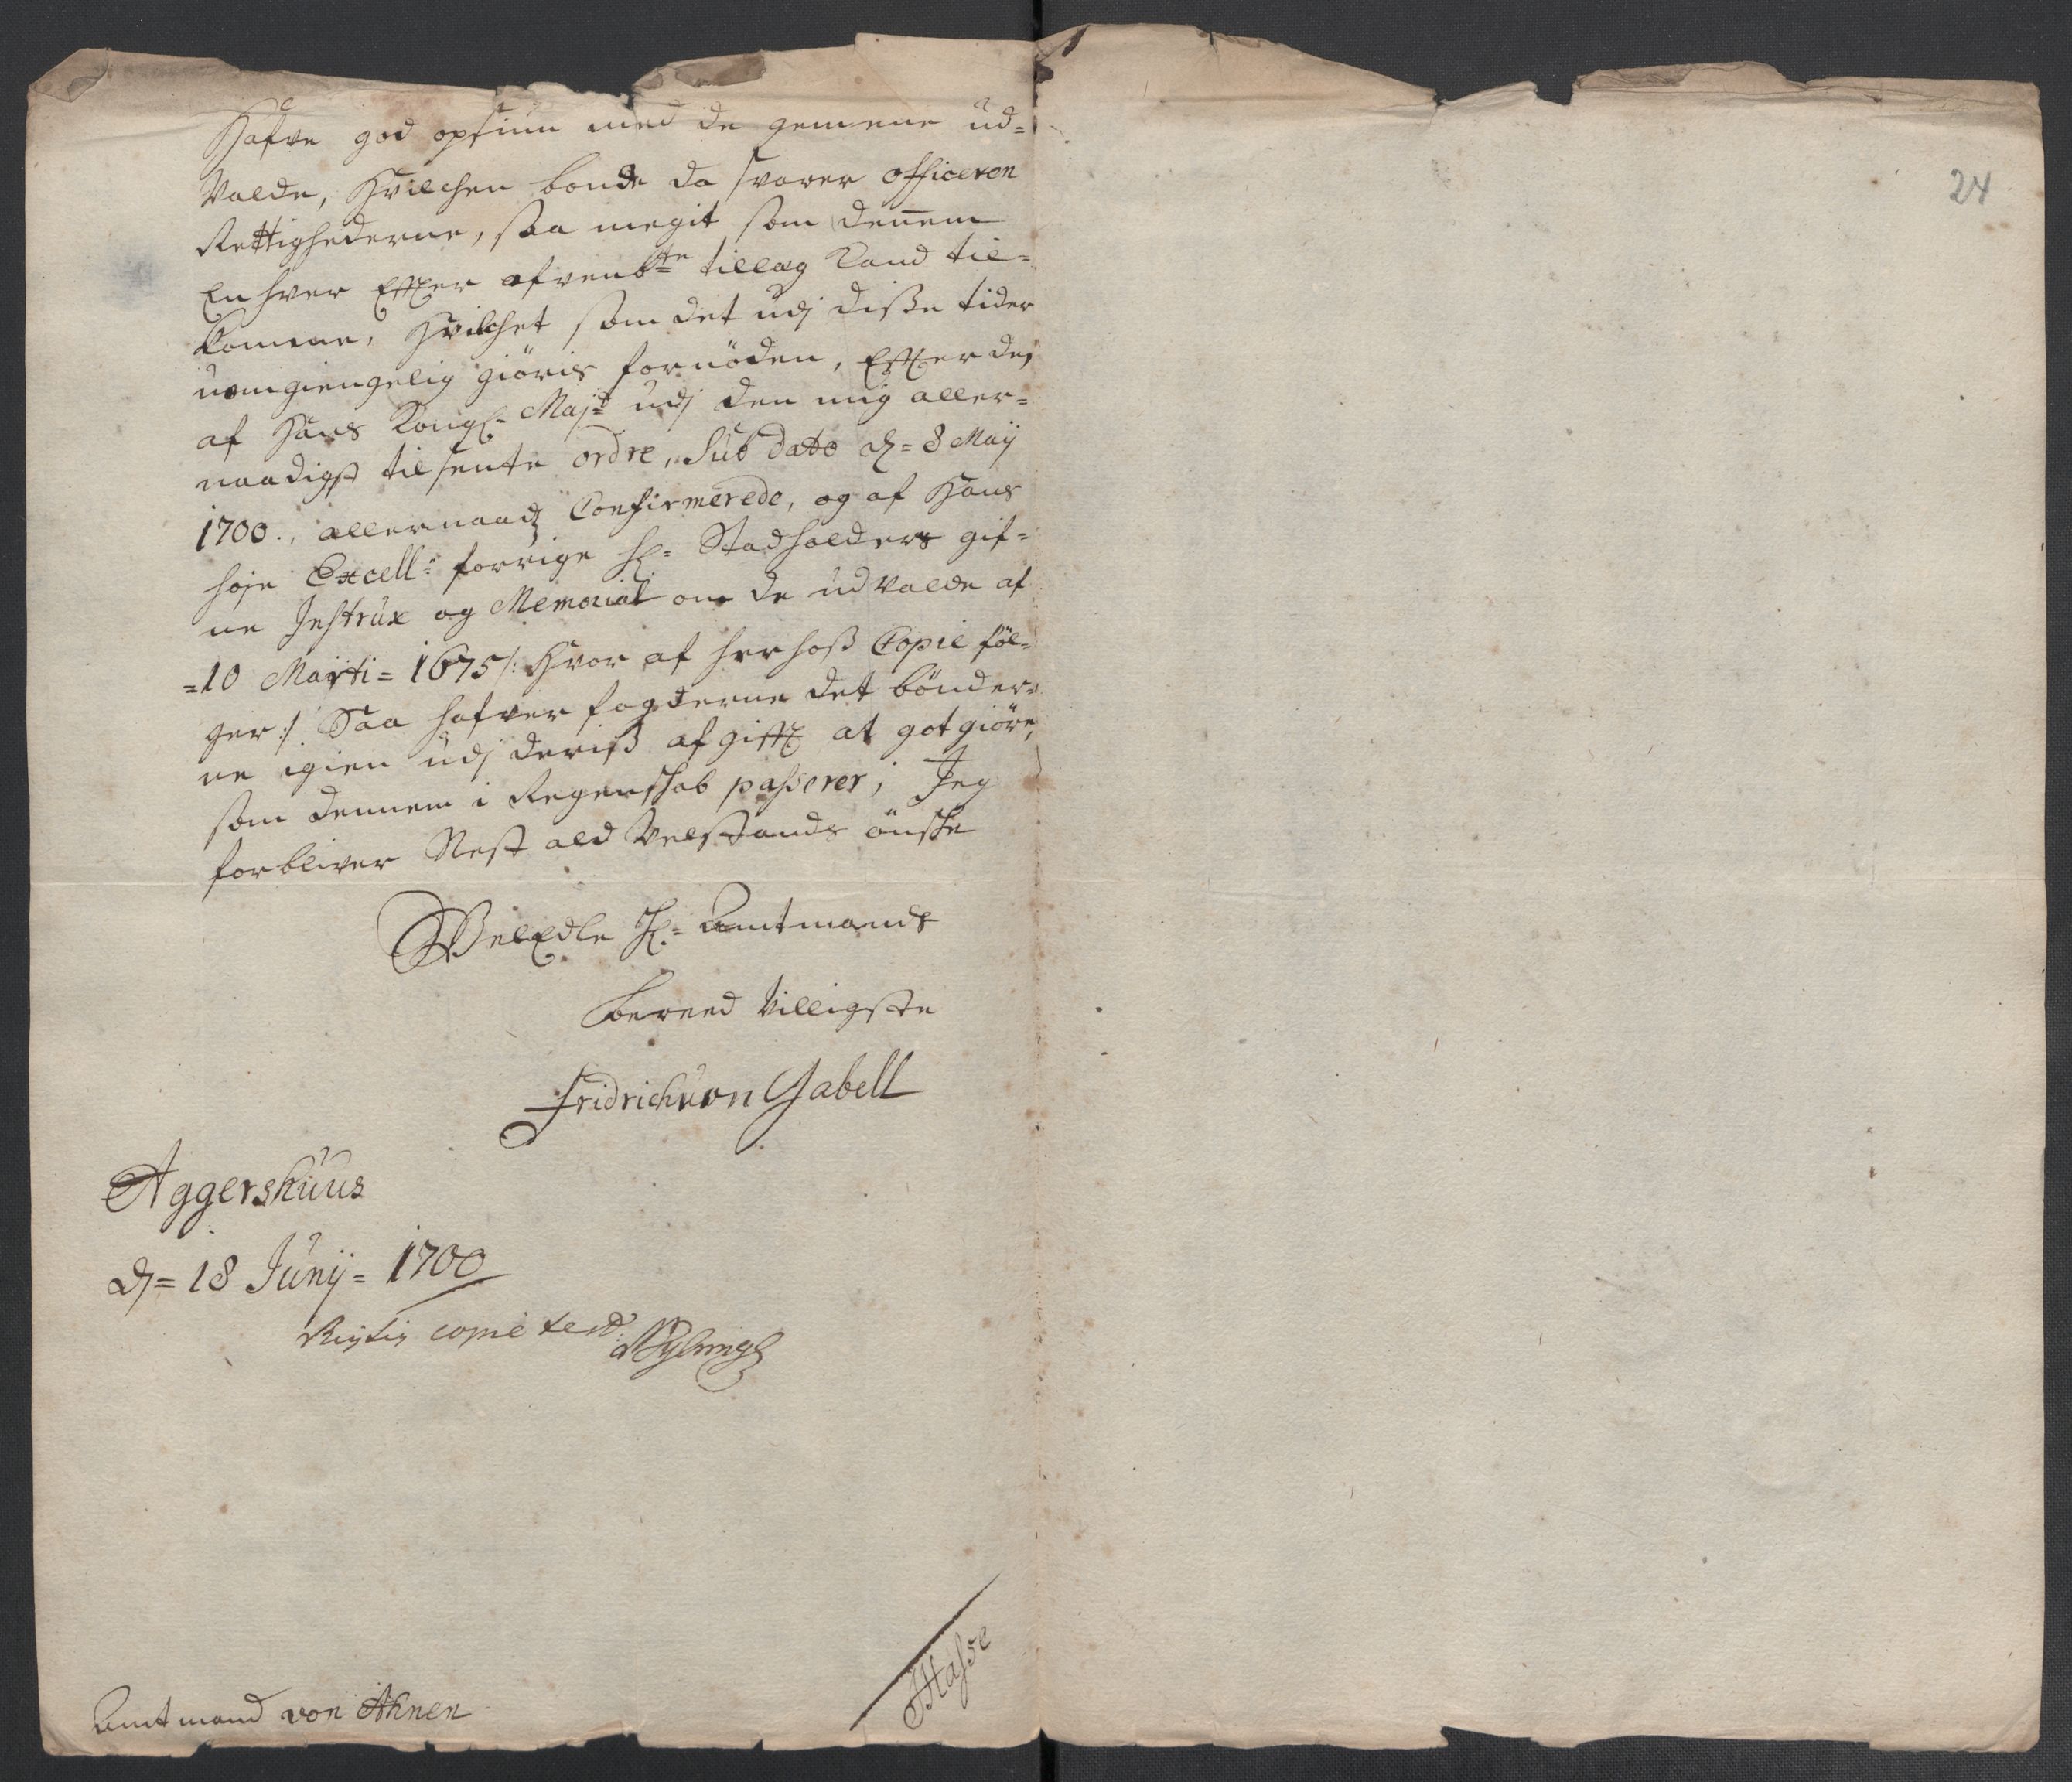 Hafve god opsiun med de gemene ud=
Valde, Hvilchen bonde da svarer officeren
Rettighederne, saa megit som dennem
En hver Effter ofvenbte tillæg Kand til=
komme, Hvilchet som det udj disse tider
uomgiengelig giöris fornöden, Effter det
af Hans Kongl: Majt udj den mig aller=
naadigst tilsente ordre, Sub dato d= 8 Maij
1700., allernaadt Confirmerede, og af Hans
høje Excell: forrige H: Stadholders gif=
ne Instrux og Memorial om de udvalde af
=10 Marti= 1675 /: Hvor af herhoß Copie föl=
ger :/ Saa hafver fogderne det bönder=
ne igien udj deris afgifft at gotgiöre,
som dennem i Regenskab passerer; Jeg
forbliver Nest ald Velstands önske
WelEdle H: Amtmands
bereed Villigste
Fridrich von Gabell
Aggershuus
d= 18 Junij= 1700
Rigtig copie test:
Amtmand von Ahnen
24